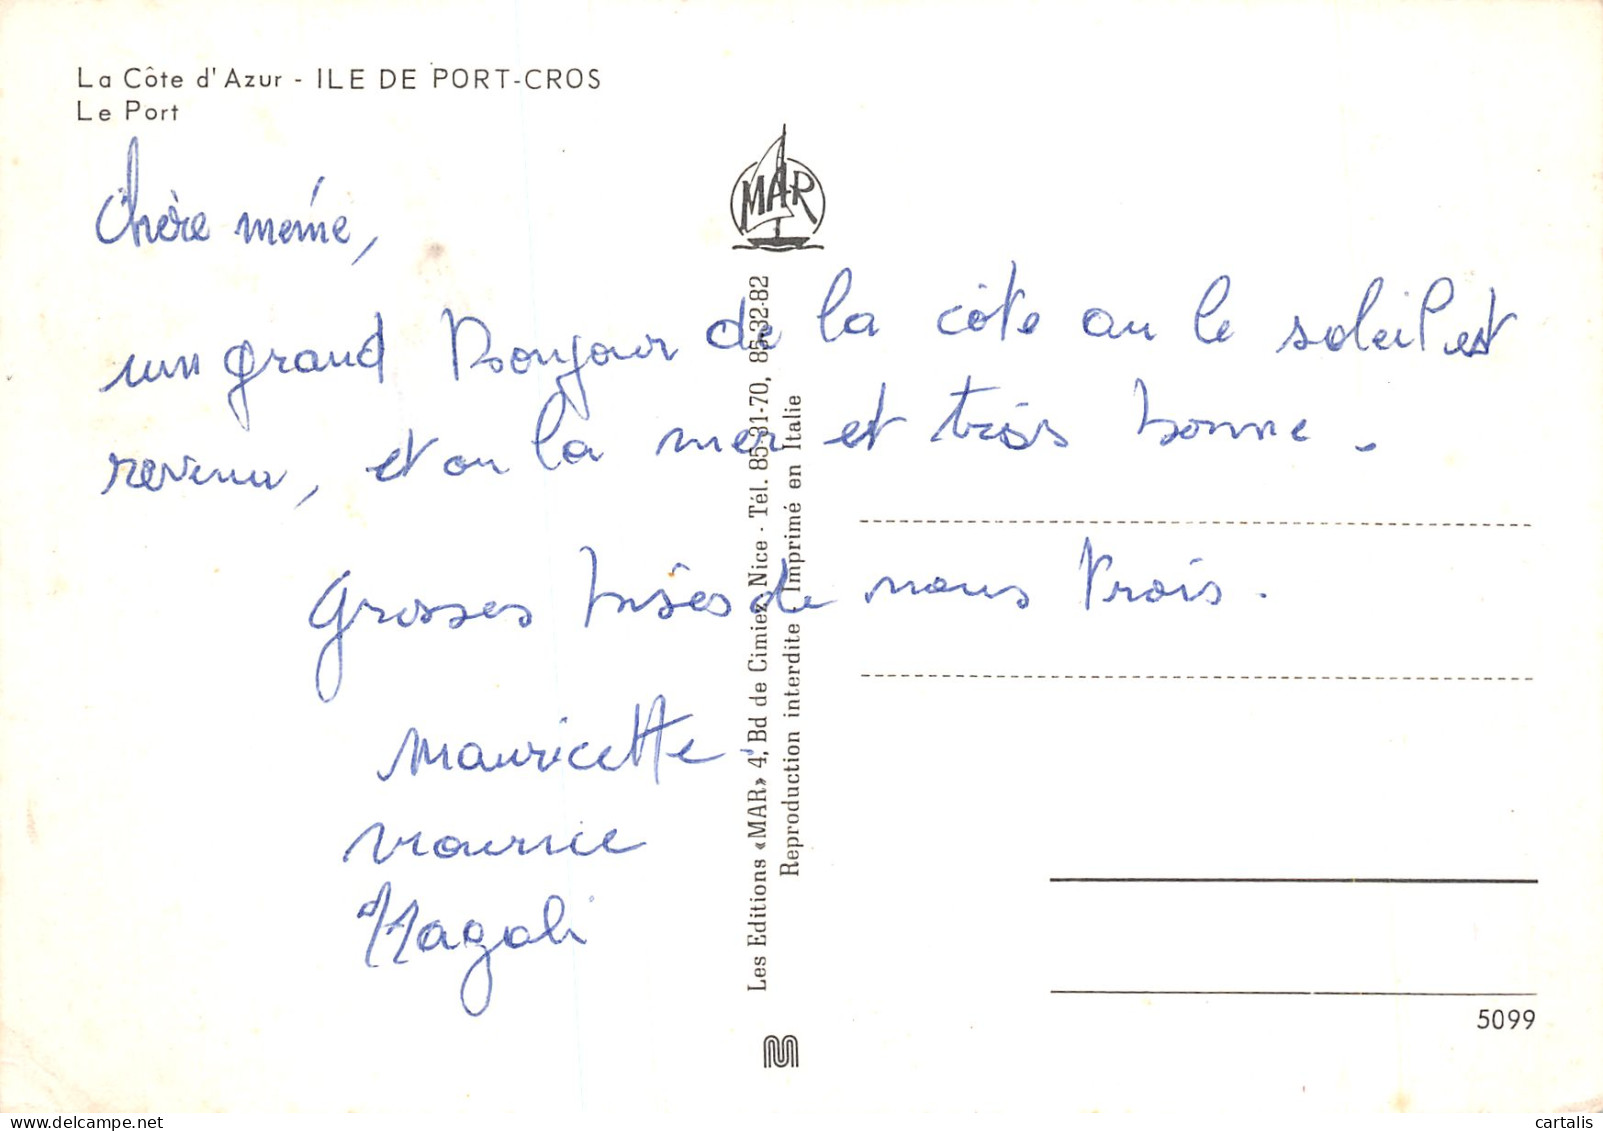 La Côte d'Azur - ILE DE PORT-CROS
Le Port
MAR
Chère mémé,
un grand Bonjour de la côte au le soleil est
revenu, et ou la mer et très bonne.
Grosses bises de nous trois.
Mauricette
Maurice
Magali
Les Editions «MAR» 4, Bd de Cimiez Nice - Tél. 85-31-70, 85-32-82
Reproduction interdite Imprimé en Italie
5099
cartalis
www.delcampe.net